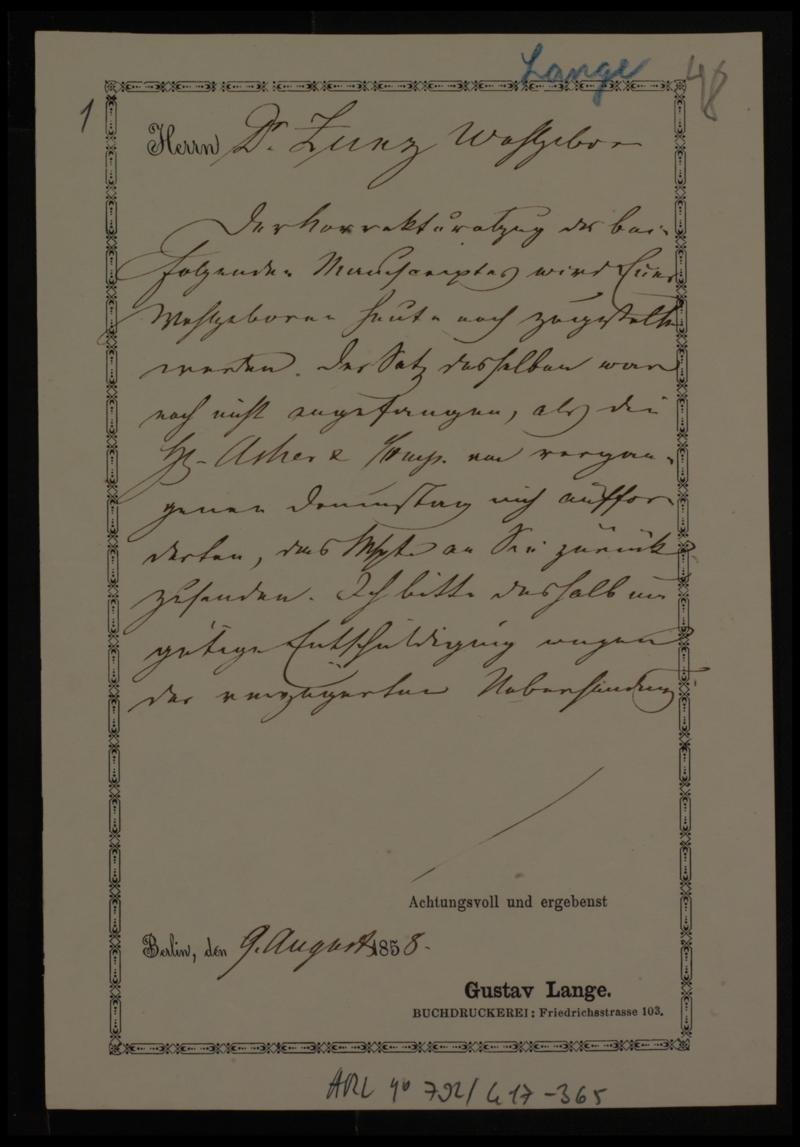 Lange
48
1
Herrn Dr. Zunz Wohlgeboren
Der Korrekturabzug des bei-
folgenden Manuscriptes wird Euer
Wohlgeboren heute noch zugestellt
werden. Der Satz desselben war
noch nicht angefangen, als die
HH. Asher & Comp. am vergan-
genen Donnerstag mich auffor-
derten, das Mspt an Sie zurück
zusenden. Ich bitte deshalb um
gütige Entschuldigung wegen
der verzögerten Uebersendung
Achtungsvoll und ergebenst
Berlin, den 9. August 1858.
Gustav Lange.
BUCHDRUCKEREI: Friedrichsstrasse 103.
ARC 4° 792/G17-365